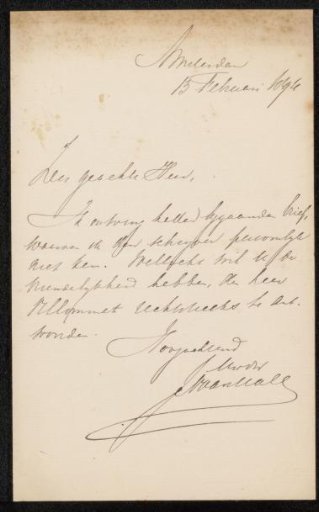 Amsterdam
15 Februari 1894
Zeer geachte Heer,
Ik ontving heden bijgaanden brief,
waarvan ik den schrijver persoonlijk
niet ken. Wellicht wil U de
vriendelijkheid hebben, den heer
rechtstreeks te ant-
woorden.
Hoogachtend
van Hall